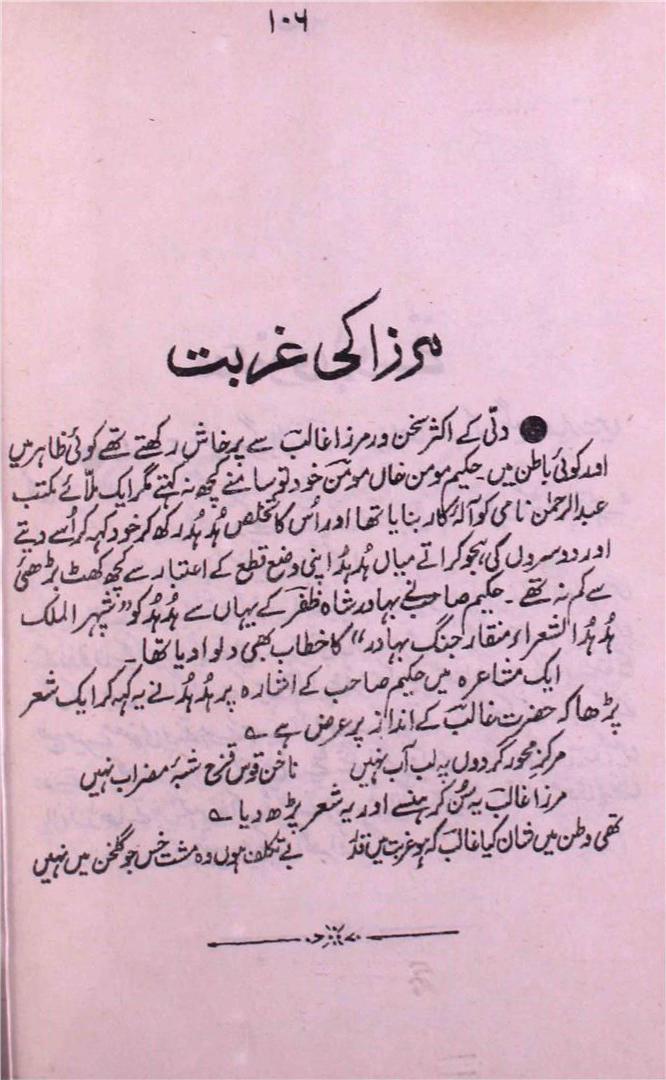 ۱۰۶
مرزا کی غربت
دلّی کے اکثر سخن ور مرزا غالبؔ سے پرخاش رکھتے تھے کوئی ظاہر میں
اور کوئی باطن میں۔ حکیم مومن خاں مومنؔ خود تو سامنے کچھ نہ کہتے مگر ایک ملّائے مکتب
عبدالرحمٰن نامی کو آلۂ کار بنایا تھا اور اُس کا تخلص ہُدہُد رکھ کر خود کہہ کر اُسے دیتے
اور دوسروں کی ہجو کراتے میاں ہُدہُد اپنی وضع قطع کے اعتبار سے کچھ کھٹ بڑھئی
سے کم نہ تھے۔ حکیم صاحب نے بہادر شاہ ظفرؔ کے یہاں سے ہُدہُد کو ”شہپر الملک
ہُدہُد الشعراء منقار جنگ بہادر“ کا خطاب بھی دلوا دیا تھا۔
ایک مشاعرہ میں حکیم صاحب کے اشارہ پر ہُدہُد نے یہ کہہ کر ایک شعر
پڑھا کہ حضرت غالبؔ کے انداز پر عرض ہے ؎
مرکزِ محور گردوں بہ لب آب نہیں ناخن قوس قزح شبۂ مضراب نہیں
مرزا غالبؔ یہ سُن کر ہنسے اور یہ شعر پڑھ دیا ؎
تھی وطن میں شان کیا غالبؔ کہ ہو غربت میں قدر بے تکلف ہوں وہ مشت خس جو گلخن میں نہیں